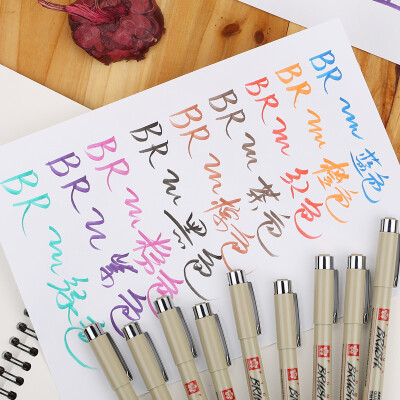 BR m 绿色
BR m 紫色
BR m 粉色
BR m 黑色
BR m 褐色
BR m 茶色
BR m 红色
BR m 橙色
BR m 蓝色